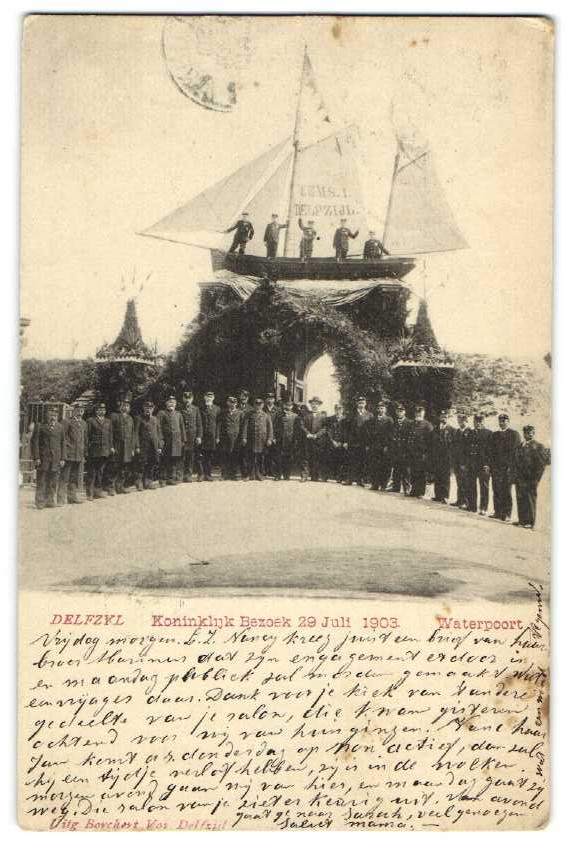 EEMS. 1.
DELFZIJL.
DELFZYL Koninklijk Bezoek 29 Juli 1903. Waterpoort
Vrijdag morgen. L. Z. Nancy kreeg juist een brief van haar
broer Marinus dat zijn engagement erdoor is
en maandag publiek zal worden gemaakt
daar. Dank voor je kiek van 't andere
gedeelte van je salon, die kwam gisteren
ochtend voor wij van huis gingen.
Jan komt a.s. donderdag op non actief, dan zal
hij een tijdje verlof hebben, zij is in de wolken
morgen avond gaan wij van hier, en maandag gaat zij
weg. Die salon van je ziet er keurig uit, van avond
gaat ge naar Sarah, veel genoegen
Saluut mama. —
Uitg Borchert Vos Delfzijl